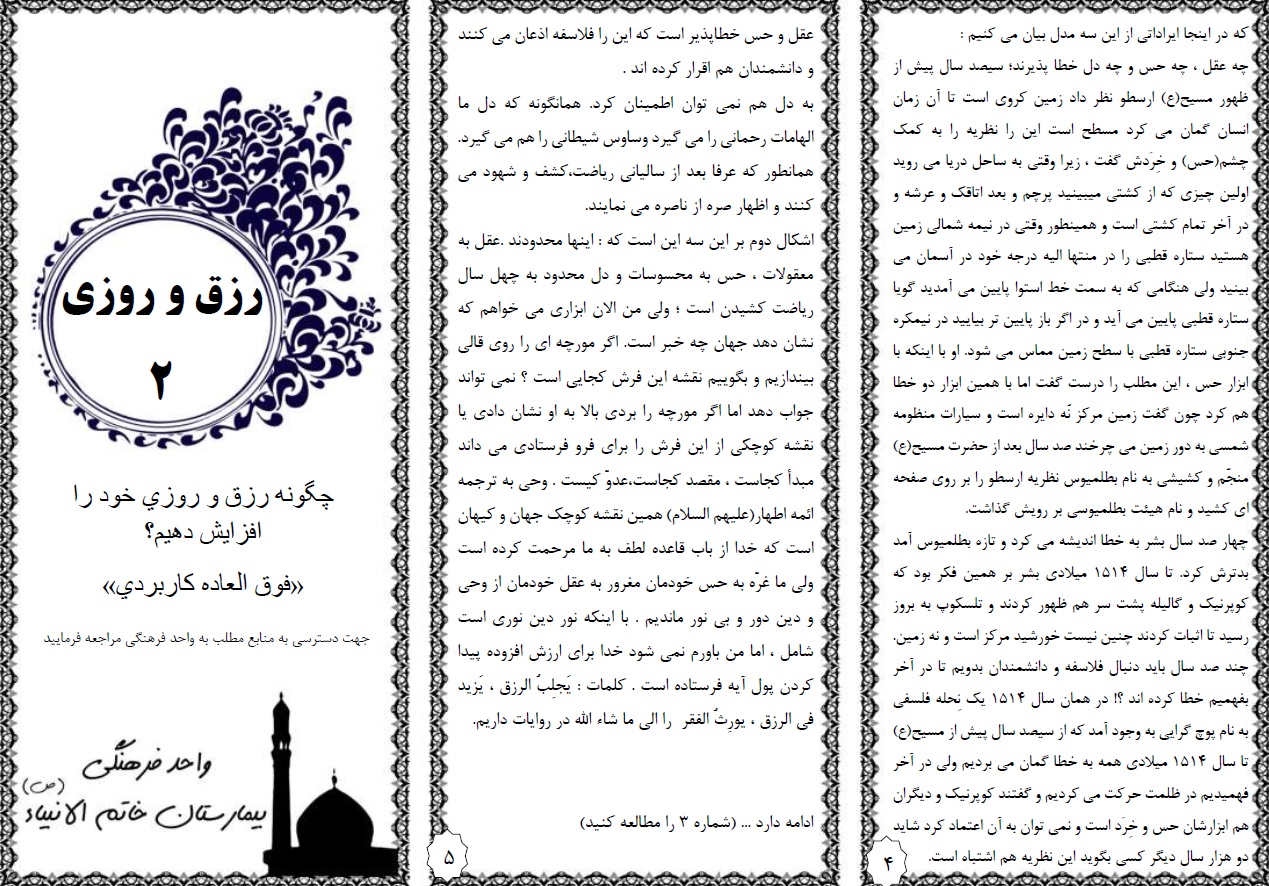 که در اینجا ایراداتی از این سه مدل بیان می کنیم :
چه عقل ، چه حس و چه دل خطا پذیرند؛ سیصد سال پیش از
ظهور مسیح(ع) ارسطو نظر داد زمین کروی است تا آن زمان
انسان گمان می کرد مسطح است این را نظریه را به کمک
چشم(حس) و خِرَدش گفت ، زیرا وقتی به ساحل دریا می روید
اولین چیزی که از کشتی میبینید پرچم و بعد اتاقک و عرشه و
در آخر تمام کشتی است و همینطور وقتی در نیمه شمالی زمین
هستید ستاره قطبی را در منتها الیه درجه خود در آسمان می
بینید ولی هنگامی که به سمت خط استوا پایین می آمدید گویا
ستاره قطبی پایین می آید و در اگر باز پایین تر بیایید در نیمکره
جنوبی ستاره قطبی با سطح زمین مماس می شود. او با اینکه با
ابزار حس ، این مطلب را درست گفت اما با همین ابزار دو خطا
هم کرد چون گفت زمین مرکز نّه دایره است و سیارات منظومه
شمسی به دور زمین می چرخند صد سال بعد از حضرت مسیح(ع)
منجّم و کشیشی به نام بطلمیوس نظریه ارسطو را بر روی صفحه
ای کشید و نام هیئت بطلمیوسی بر رویش گذاشت.
چهار صد سال بشر به خطا اندیشه می کرد و تازه بطلمیوس آمد
بدترش کرد. تا سال ۱۵۱۴ میلادی بشر بر همین فکر بود که
کوپرنیک و گالیله پشت سر هم ظهور کردند و تلسکوپ به بروز
رسید تا اثبات کردند چنین نیست خورشید مرکز است و نه زمین.
چند صد سال باید دنبال فلاسفه و دانشمندان بدویم تا در آخر
بفهمیم خطا کرده اند ؟! در همان سال ۱۵۱۴ یک نِحله فلسفی
به نام پوچ گرایی به وجود آمد که از سیصد سال پیش از مسیح(ع)
تا سال ۱۵۱۴ میلادی همه به خطا گمان می بردیم ولی در آخر
فهمیدیم در ظلمت حرکت می کردیم و گفتند کوپرنیک و دیگران
هم ابزارشان حس و خِرَد است و نمی توان به آن اعتماد کرد شاید
دو هزار سال دیگر کسی بگوید این نظریه هم اشتباه است.
۴
عقل و حس خطاپذیر است که این را فلاسفه اذعان می کنند
و دانشمندان هم اقرار کرده اند .
به دل هم نمی توان اطمینان کرد. همانگونه که دل ما
الهامات رحمانی را می گیرد وساوس شیطانی را هم می گیرد.
همانطور که عرفا بعد از سالیانی ریاضت،کشف و شهود می
کنند و اظهار صره از ناصره می نمایند.
اشکال دوم بر این سه این است که : اینها محدودند .عقل به
معقولات ، حس به محسوسات و دل محدود به چهل سال
ریاضت کشیدن است ؛ ولی من الان ابزاری می خواهم که
نشان دهد جهان چه خبر است. اگر مورچه ای را روی قالی
بیندازیم و بگوییم نقشه این فرش کجایی است ؟ نمی تواند
جواب دهد اما اگر مورچه را بردی بالا به او نشان دادی یا
نقشه کوچکی از این فرش را برای فرو فرستادی می داند
مبدأ کجاست ، مقصد کجاست،عدوّ کیست . وحی به ترجمه
ائمه اطهار(علیهم السلام) همین نقشه کوچک جهان و کیهان
است که خدا از باب قاعده لطف به ما مرحمت کرده است
ولی ما غرّه به حس خودمان مغرور به عقل خودمان از وحی
و دین دور و بی نور ماندیم . با اینکه نور دین نوری است
شامل ، اما من باورم نمی شود خدا برای ارزش افزوده پیدا
کردن پول آیه فرستاده است . کلمات : یَجلِبُ الرزق ، یَزید
فی الرزق ، یورِثُ الفقر را الی ما شاء الله در روایات داریم.
ادامه دارد ... (شماره ۳ را مطالعه کنید)
۵
رزق و روزی
۲
چگونه رزق و روزي خود را
افزایش دهیم؟
«فوق العاده کاربردي»
جهت دسترسی به منابع مطلب به واحد فرهنگی مراجعه فرمایید
واحد فرهنگی
بیمارستان خاتم الانبیاء (ص)